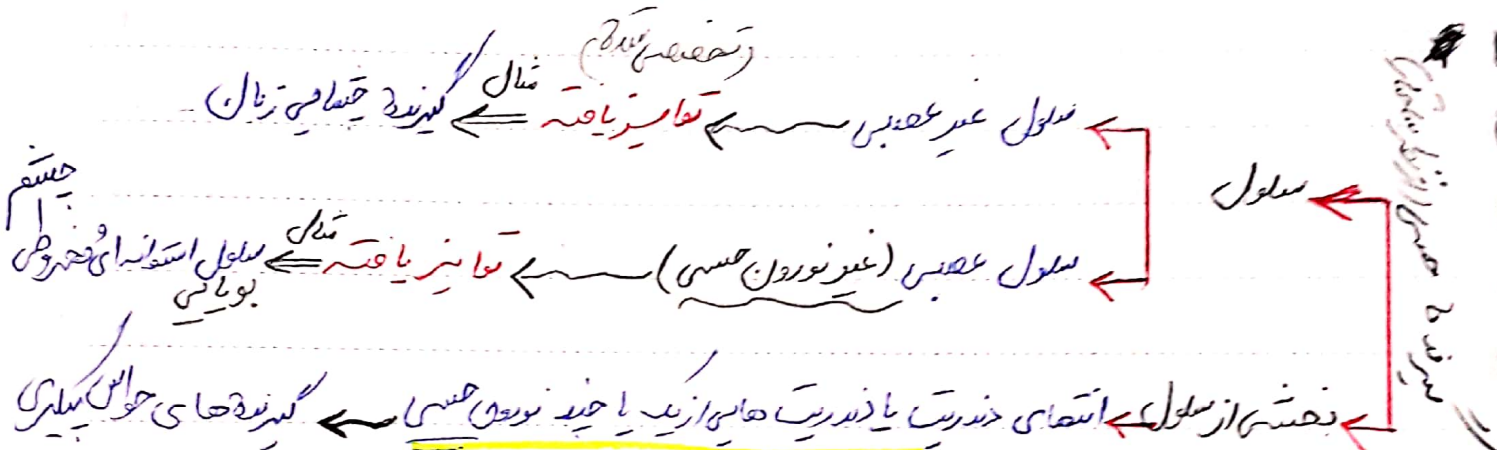 گیرنده حسی (از نظر ساختار)
سلول
(تخصصی شده)
سلول غیر عصبی تمایز یافته مثال گیرنده چشایی زبان
سلول عصبی (غیر نورون حسی) تمایز یافته مثال سلول استوانه‌ای و مخروطی چشم
بویایی
بخشی از سلول انتهای دندریت یا دندریت هایی از یک یا چند نورون حسی گیرنده های حواس پیکری